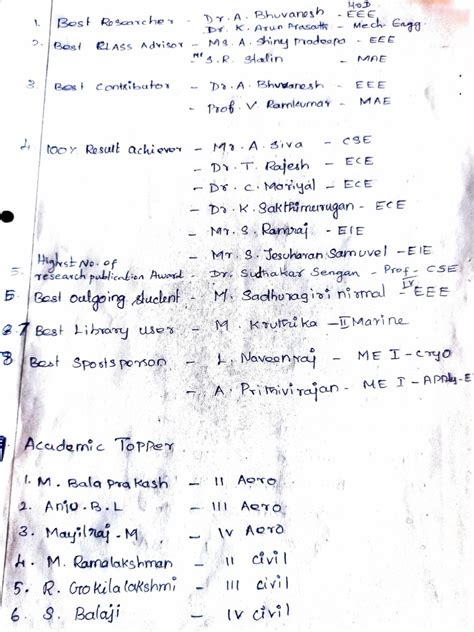 HOD
1. Best Researcher - Dr. A. Bhuvanesh - EEE
Dr. K. Arun Prasath - Mech. Engg.
2. Best Class Advisor - Ms. A. Shiny Pradeepa - EEE
Mr S. R. Stalin - MAE
3. Best Contributor - Dr. A. Bhuvanesh - EEE
- Prof. V. Ramkumar - MAE
4. 100% Result Achiever - Mr. A. Siva - CSE
- Dr. T. Rajesh - ECE
- Dr. C. Mariyal - ECE
- Dr. K. Sakthimurugan - ECE
- Mr. S. Ramraj - EIE
- Mr. S. Jesuharan Samuvel - EIE
Highest No. of
5. research publication Award - Dr. Sudhakar Sengan - Prof - CSE
Best outgoing student - M. Sadhuragiri nirmal - IV EEE
7 Best Library user - M. Kruthika - II Marine
8 Best Spostsperson - L. Naveenraj - ME I - Cryo
- A. Prithivirajan - ME I -
Academic Topper
1. M. Bala prakash - II Aero
2. Anju. B. L - III Aero
3. Mayilraj. M - IV Aero
4. M. Ramalakshman - II Civil
5. R. Gokilalakshmi - III Civil
6. S. Balaji - IV Civil